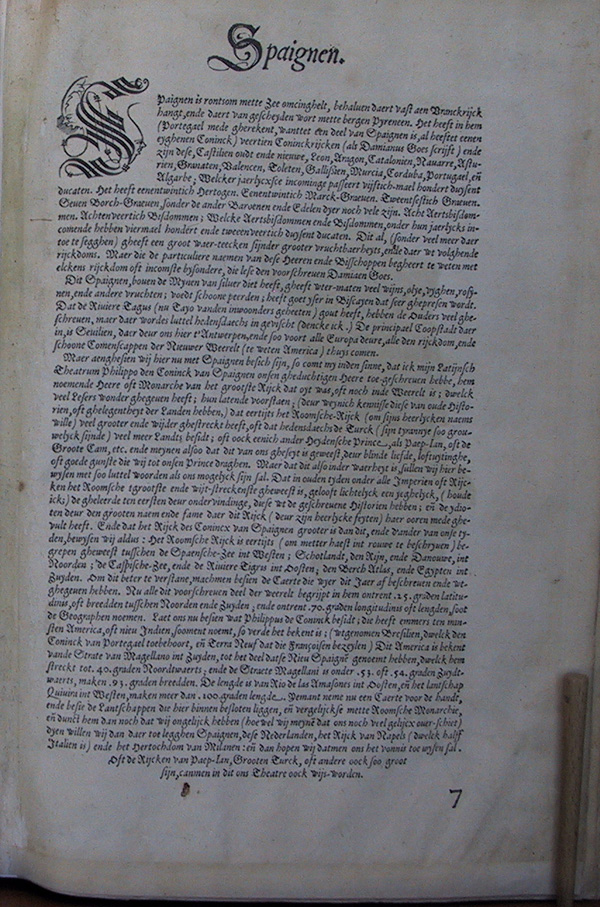 Spaignen.
SPaignen is rontsom mette Zee omcinghelt, behaluen daert vast aen Vranckrijck
hangt, ende daert van gescheyden wort mette bergen Pyrenten. Het heeft in hem
(Portegael mede gherekent, wanttet een deel van Spaignen is, al heeftet eenen
eyghenen Coninck) veertien Coninckrijcken (als Damianus Goes scrijft) ende
zijn dese, Castilien oudt ende nieuwe, Leon, Aragon, Catalonien, Nauarre, Astu-
rien, Granaten, Valencen, Toleten, Gallissien, Murcia, Corduba, Portugael, eñ
Algarbe; Welcker jaerlycxsce incominge passeert vijftich-mael hondert duysent
ducaten. Het heeft eenentwintich Hertogen. Eenentwintich Marck-Graeuen. Tweentsestich Graeuen.
Seuen Borch-Graeuen, sonder de ander Baroenen ende Edelen dyer noch vele zijn. Acht Aertsbisdom-
men. Achtenveertich Bisdommen; Welcke Aertsbisdommen ende Bisdommen, onder hun jaerlycks in-
comende hebben viermael hondert ende tweeenveertich duysent ducaten. Dit al, (sonder veel meer daer
toe te segghen) gheeft een groot waer-teecken sijnder grooter vruchtbaerheyts, ende daer we volghende
rijckdoms. Maer die de particuliere naemen van dese Heeren ende Bisschoppen begheert te weten met
elckens rijckdom oft incomste bysondere, die lese den voorschreuen Damiaen Goes.
Dit Spaignen, bouen de Mynen van siluer diet heeft, gheeft wter-maten veel wijns, olye, vyghen, rosy-
nen, ende andere vruchten; voedt schoone peerden; heeft goet yser in Biscayen dat seer ghepresen wordt.
Dat de Riuiere Tagus (nu Tayo vanden inwoonders geheeten) gout heeft, hebben de Ouders veel ghe-
schreuen, maer daer wordes luttel hedensdaechs in geuischt (dencke ick.) De principael Coopstadt daer
in, is Seuilien, daer deur ons hier t'Antwerpen, ende soo voort alle Europa deure, alle den rijckdom, ende
schoone Comenscappen der Nieuwer Weerelt (te weten America) thuys comen.
Maer aenghesien wij hier nu met Spaignen besich sijn, so comt my inden sinne, dat ick mijn Latijnsch
Theatrum Philippo den Coninck van Spaignen onsen gheduchtigen Heere toe-geschreuen hebbe, hem
noemende Heere oft Monarche van het grootste Rijck dat oyt was, oft noch inde Weerelt is; dwelck
veel Lesers wonder ghegeuen heeft; hun latende voorstaen, (deur weynich kennisse diese van oude Histo-
rien, oft ghelegentheyt der Landen hebben,) dat eertijts het Roomsche-Rijck (om sijns heerlycken naems
wille) veel grooter ende wijder ghestreckt heeft, oft dat hedensdaechs de Turck (sijn tyrannye soo grou-
welyck sijnde) veel meer Landts besidt; oft oock eenich ander Heydensche Prince, als Paep-Ian, oft de
Groote Cam, etc. ende meynen alsoo dat dit van ons gheseyt is geweest, deur blinde liefde, loftuytinghe,
oft goede gunste die wij tot onsen Prince draghen. Maer dat dit also inder waerheyt is, sullen wij hier be-
wysen met soo luttel woorden als ons mogelyck sijn sal. Dat in ouden tyden onder alle Imperien oft Rijc-
ken het Roomsche tgrootste ende wijt-streckenste gheweest is, gelooft lichtelyck een yeghelyck, (houde
ick;) de gheleerde ten eersten deur ondervindinge, diese wt de geschreuene Historien hebben; eñ de ydio-
ten deur den grooten naem ende fame daer dit Rijck (deur zijn heerlycke feyten) haer ooren mede ghe-
vult heeft. Ende dat het Rijck des Conincx van Spaignen grooter is dan dit, ende d'ander van onse ty-
den, bewysen wij aldus: Het Roomsche Rijck is eertijts (om metter haest int rouwe te beschryuen) be-
grepen gheweest tusschen de Spaensche-Zee int Westen; Schotlandt, den Rijn, ende Danouwe, int
Noorden; de Caspische-Zee, ende de Riuiere Tigris int Oosten; den Berch Atlas, ende Egypten int
Zuyden. Om dit beter te verstane, machmen besien de Caerte die wyer dit Jaer af beschreuen ende wt-
ghegeuen hebben. Nu alle dit voorschreuen deel der weerelt begrijpt in hem ontrent .25. graden latitu-
dinis, oft breedden tusschen Noorden ende Zuyden; ende ontrent .70. graden longitudinis oft lengden, soot
de Geographen noemen. Laet ons nu besien wat Philippus de Coninck besidt; die heeft emmers ten min-
sten America, oft nieu Indien, soment noemt, so verde het bekent is; (wtgenomen Bresilien, dwelck den
Coninck van Portegael toebehoort, eñ Terra Neuf dat die Françoisen bezeylen) Dit America is bekent
vande Strate van Magellano int Zuyden, tot het deel datse Nieu Spaigne genoemt hebben, dwelck hem
streckt tot .40. graden Noordtwaerts; ende de Straete Magellani is onder .53. oft .54. graden Zuydt-
waerts, maken .93. graden breedden. De lengde is van Rio de las Amasones int Oosten, eñ het lantschap
Quiuira int Westen, maken meer dan .100. graden lengde. Yemant neme nu een Caerte voor de handt,
ende besie de Lantschappen die hier binnen besloten liggen, eñ vergelijckse mette Roomsche Monarchie,
eñ dunct hem dan noch dat wij ongelijck hebben (hoe wel wij meynẽ dat ons noch veel gelijcx ouer-schiet)
dyen willen wij dan daer toe legghen Spaignen, dese Nederlanden, het Rijck van Napels (dwelck halff
Italien is) ende het Hertochdom van Milanen: eñ dan hopen wij datmen ons het vonnis toe wysen sal.
Oft de Rijcken van Paep-Ian, Grooten Turck, oft andere oock soo groot
sijn, canmen in dit ons Theatre oock wijs-worden.
7